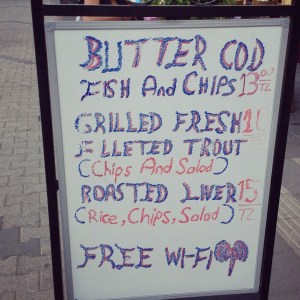 BUTTER COD
FISH And CHIPS 13.00 TL
GRILLED FRESH
FILLETED TROUT
(Chips And Salad)
ROASTED LIVER 15 TL
(Rice, Chips, Salad)
FREE WI-FI